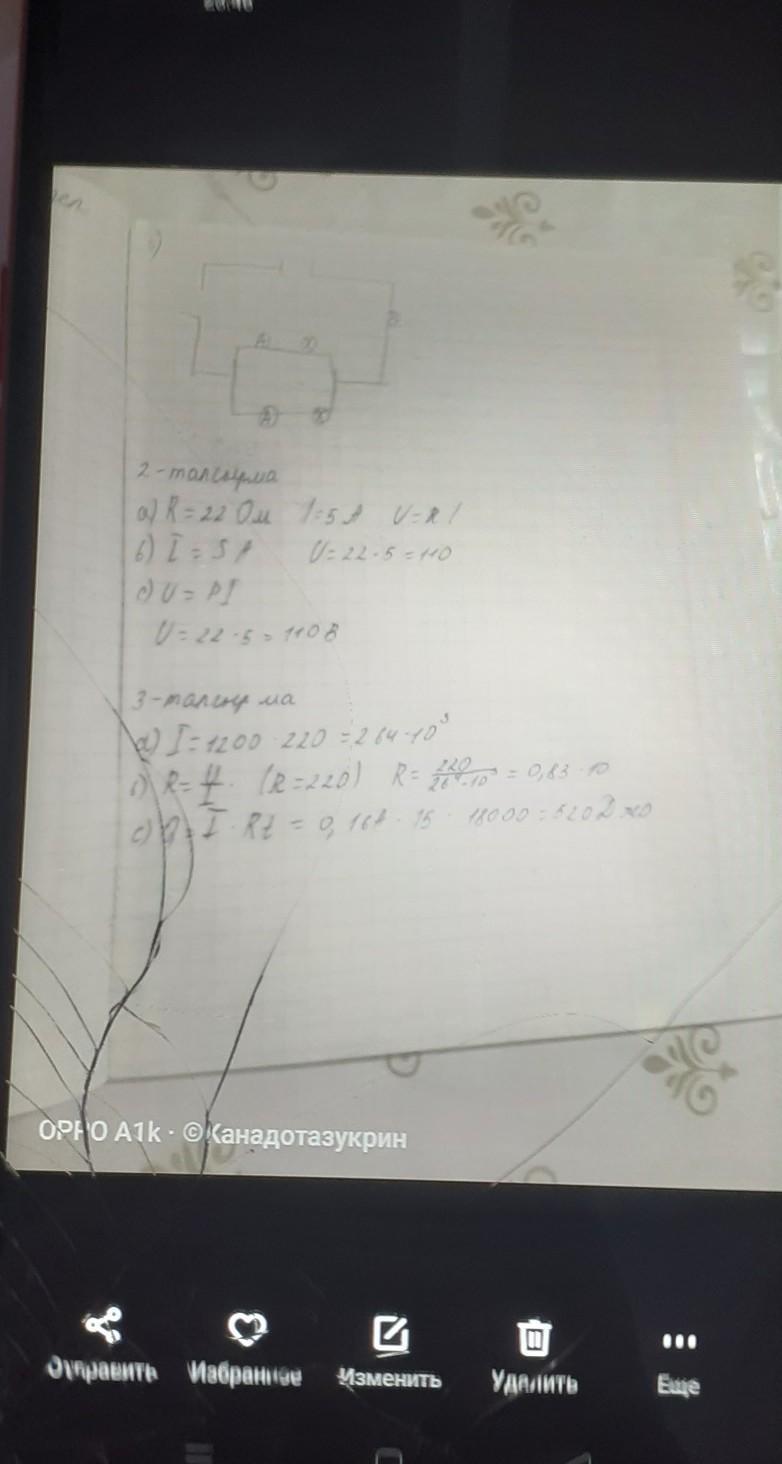 A X
B
A X
2-тапсырма
a) R = 22 Ом I=5 A U=RI
b) I = 5 A U=22·5=110
c) U = РI
U=22·5=110В
3-тапсырма
a) I=1200·220=264·10³
b) R= U/I · (R=220) R= 220/264·10³ =0,83·10
c) Q=I·Rt = 0,16A·15·18000=520Дж
OPPO A1k · ©Канадотазукрин
Отправить Избранное Изменить Удалить Еще